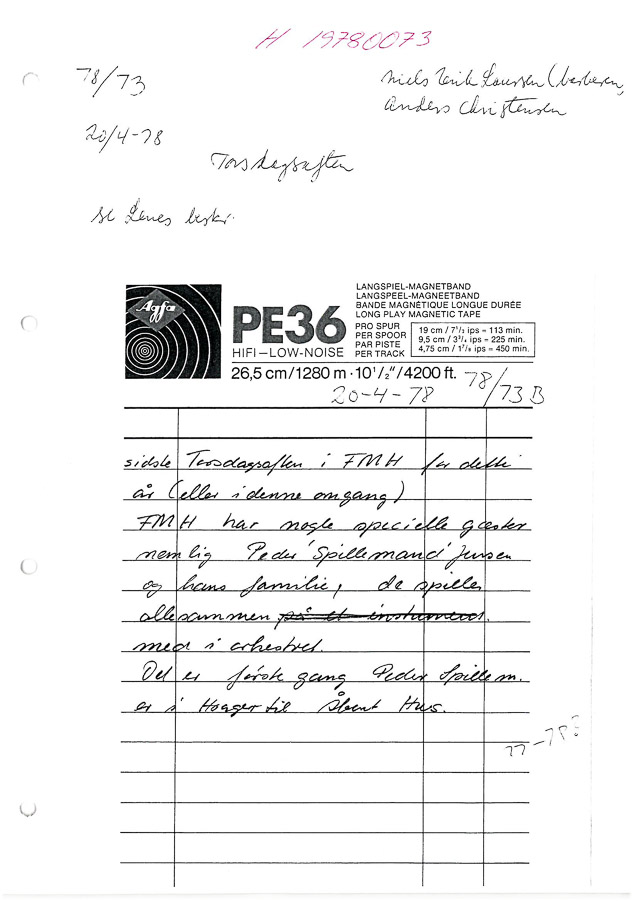 H 19780073
78/73
Niels Erik Laursen (
Anders Christensen
20/4-78
Torsdagsaften
se Lenes beskr.
LANGSPIEL-MAGNETBAND
LANGSPEEL-MAGNEETBAND
BANDE MAGNÉTIQUE LONGUE DURÉE
LONG PLAY MAGNETIC TAPE
Agfa
PE36
HIFI–LOW-NOISE
PRO SPUR
PER SPOOR
PAR PISTE
PER TRACK
19 cm / 7 1/2 ips = 113 min.
9,5 cm / 3 3/4 ips = 225 min.
4,75 cm / 1 7/8 ips = 450 min.
26,5 cm/1280 m · 10 1/2"/4200 ft.
20-4-78
78/73 B
sidste Torsdagsaften i FMH for dette
år (eller i denne omgang)
FMH har nogle specielle gæster
nemlig Peder 'Spillemand' Jensen
og hans familie, de spiller
allesammen på et instrument.
med i orkestret.
Det er første gang Peder Spillem.
er i Hoager til Åbent Hus.